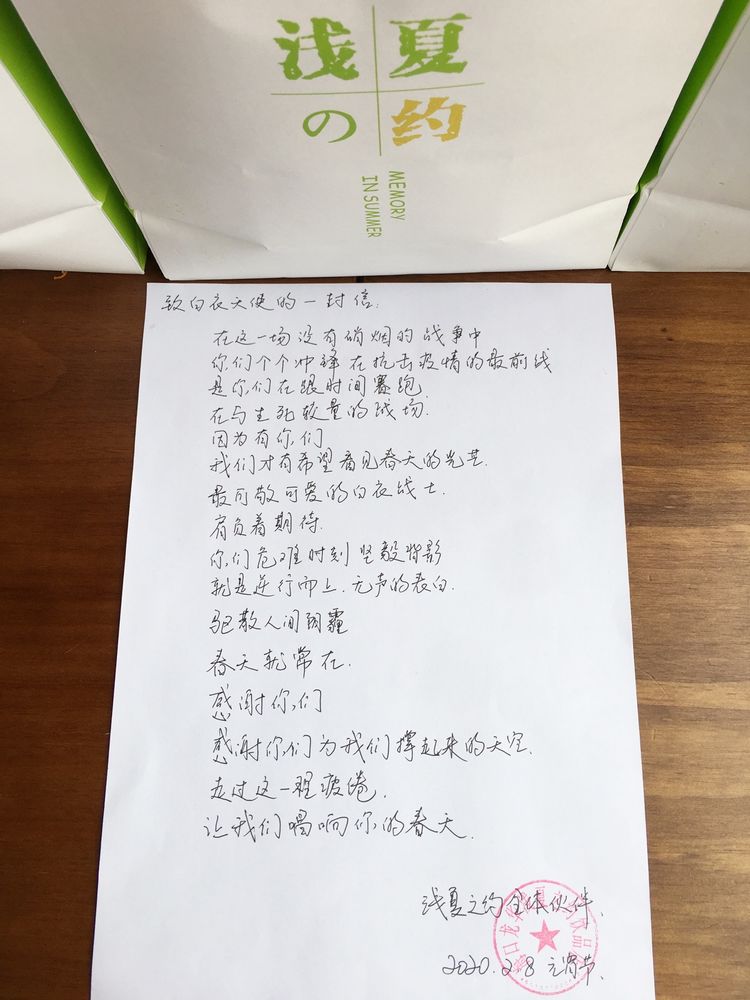 浅夏
の约
MEMORY
IN SUMMER
致白衣天使的一封信:
在这一场没有硝烟的战争中
你们个个冲锋在抗击疫情的最前线
是你们在跟时间赛跑.
在与生死较量的战场.
因为有你们
我们才有希望看见春天的光芒.
最可敬可爱的白衣战士.
肩负着期待.
你们危难时刻坚毅背影
就是逆行而上.无声的表白.
驱散人间阴霾
春天就常在.
感谢你们
感谢你们为我们撑起来的天空.
走过这一程疲倦.
让我们唱响你的春天.
浅夏之约全体伙伴.
2020.2.8 元宵节.